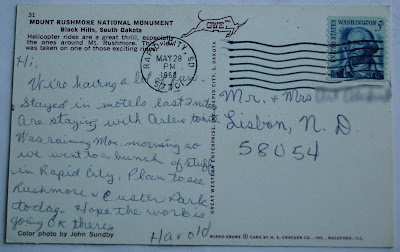 31
MOUNT RUSHMORE NATIONAL MONUMENT
Black Hills, South Dakota
Helicopter rides are a great thrill, especially
the ones around Mt. Rushmore. This view
was taken on one of those exciting rides.
RAPID CITY, SD
MAY 28
PM
UNITED STATES
WASHINGTON
5c
Hi,
We're having a lot of fun.
Stayed in motels last 2 nites
Are staying with Arlens tonite
Was raining Mon. morning so
we went to a bunch of stuff
in Rapid City. Plan to see
Rushmore & Custer Park
today. Hope the work is
going OK there.
Harold
Mr. & Mrs
Lisbon, N. D.
58054
GREAT WESTERN ENTERPRISE, RAPID CITY, S. DAKOTA
Color photo by John Sundby
MICRO-CHROME CARD BY H. S. CROCKER CO., INC.